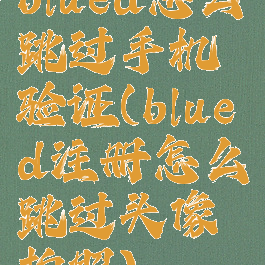 blued怎么
跳过手机
验证(blue
d注册怎么
跳过头像